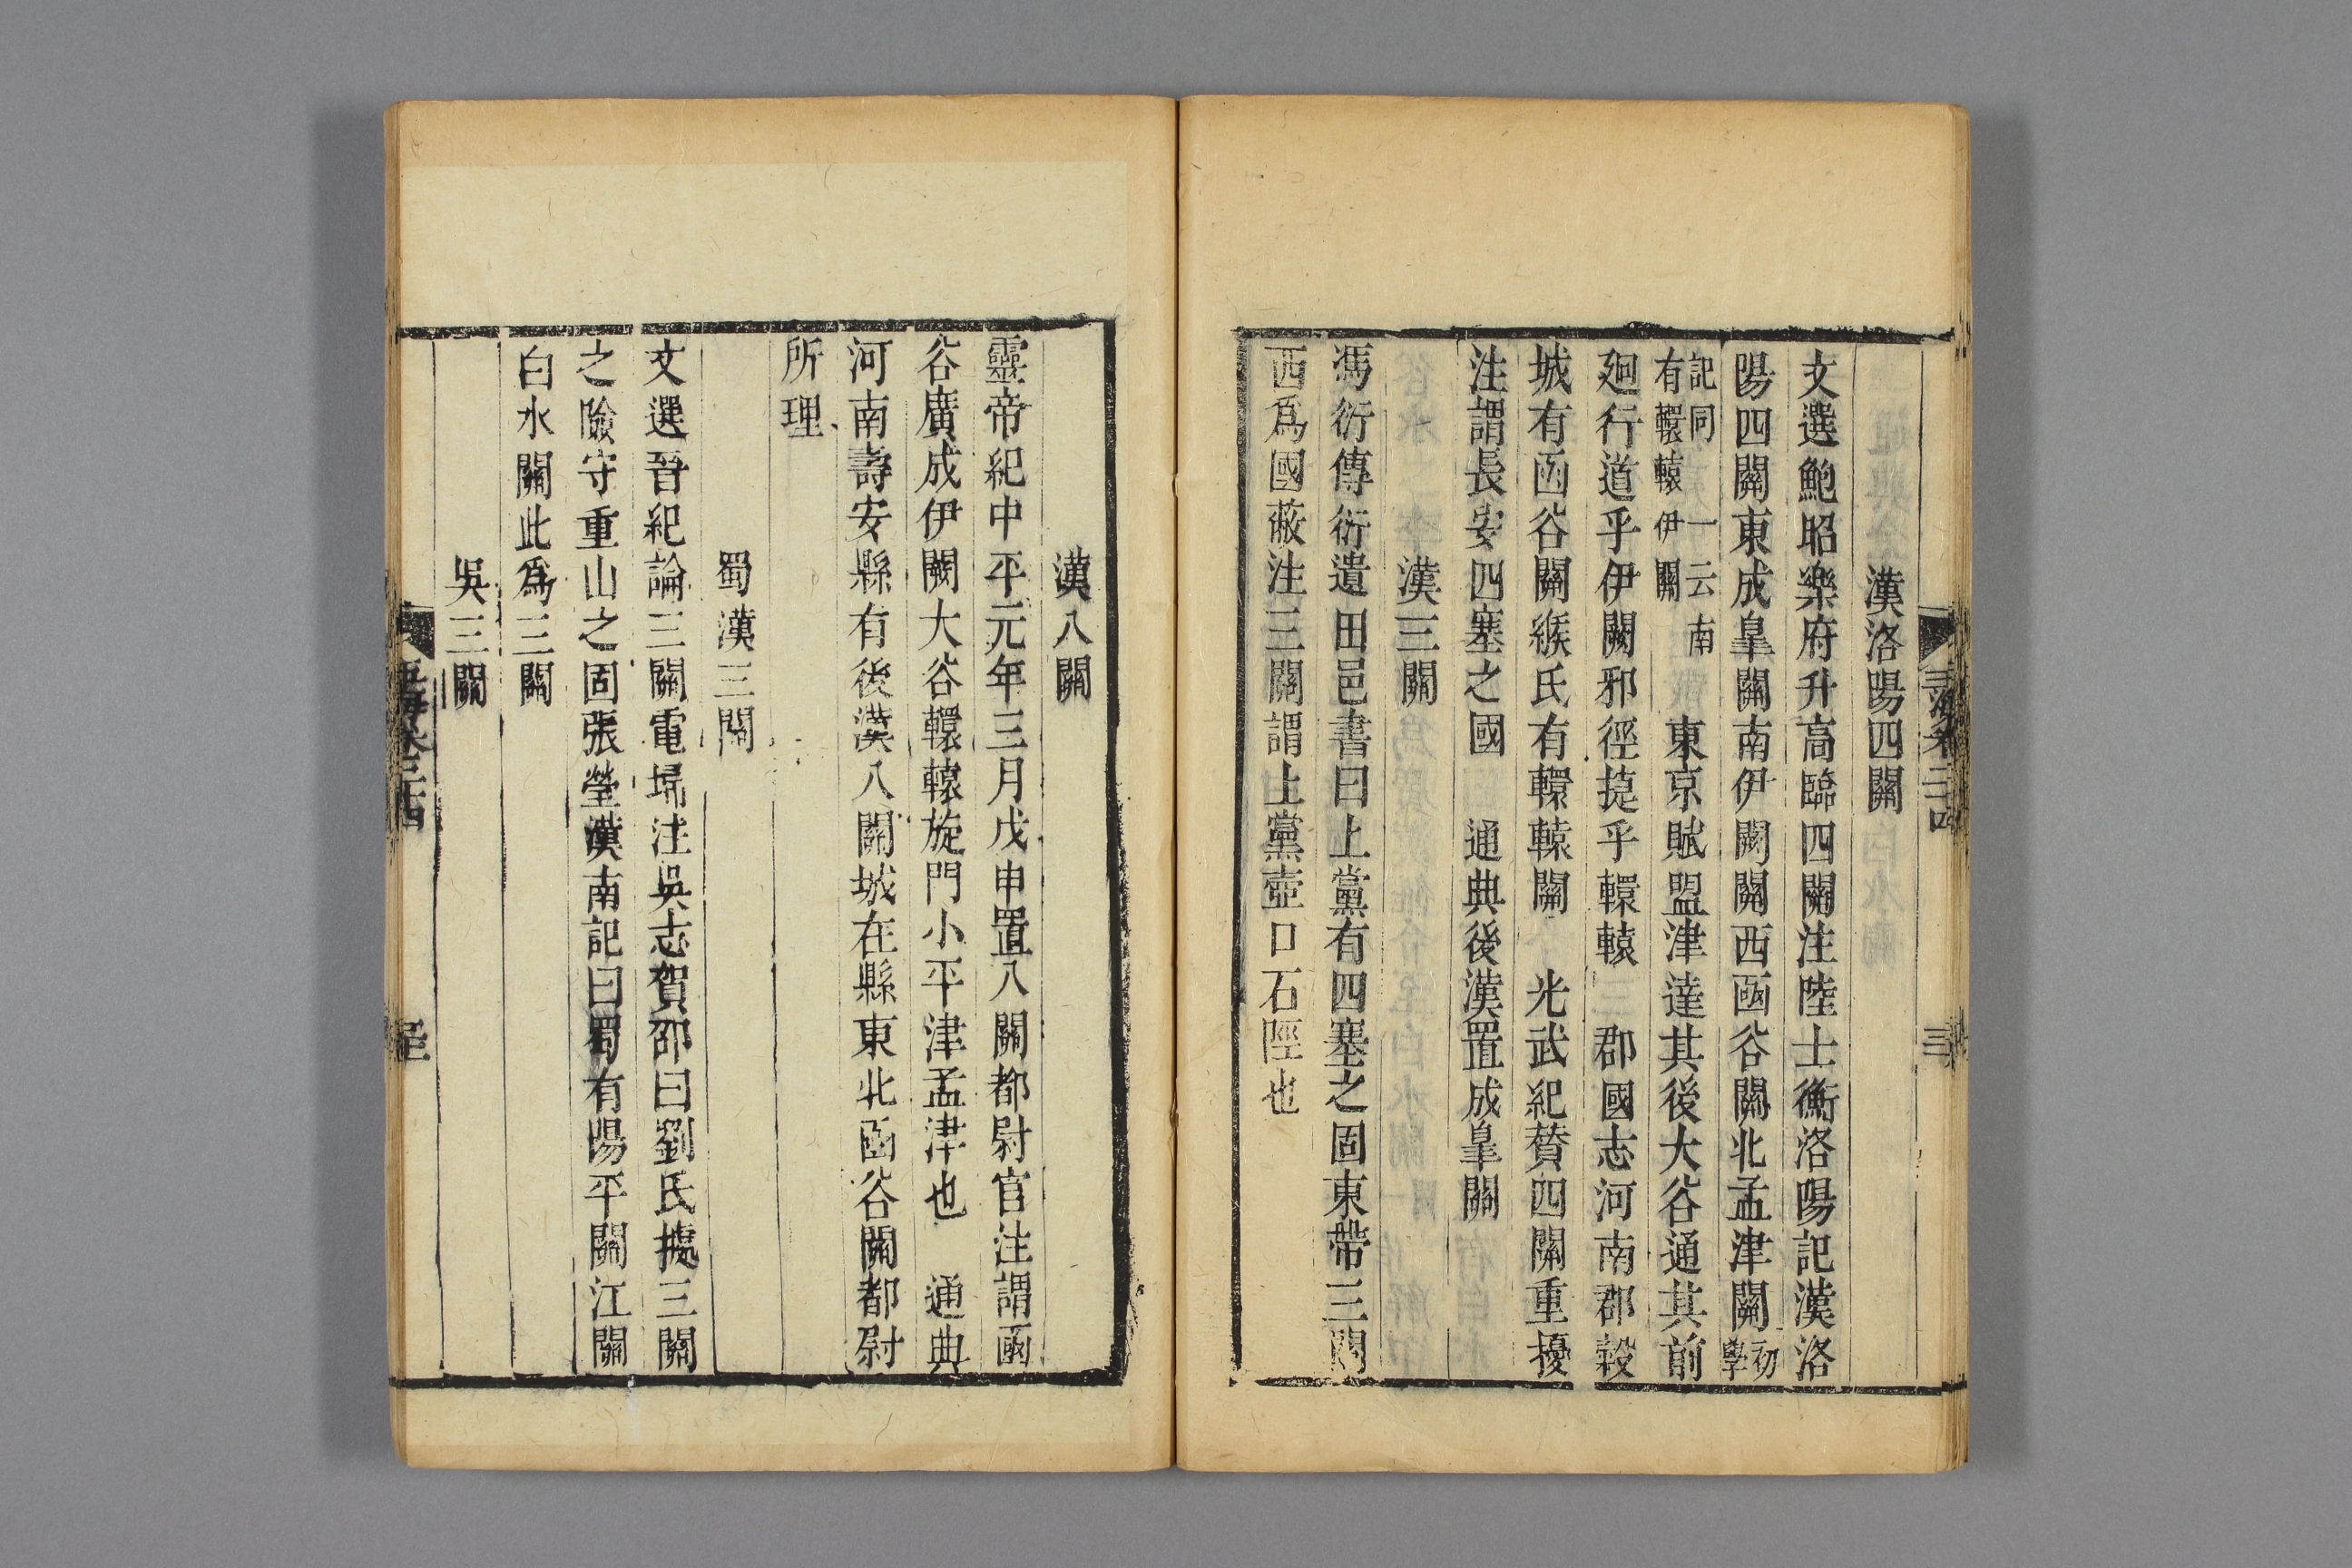 漢洛陽四關
文選鮑昭樂府升高臨四關注陸士衡洛陽記漢洛
陽四關東成皐關南伊闕關西函谷關北孟津關初學
記同一云南有轘轅伊關東京賦盟津達其後大谷通其前
廻行道乎伊闕邪徑捷乎轘轅郡國志河南郡穀
城有函谷關緱氏有轘轅關光武紀贊四關重擾
注謂長安四塞之國通典後漢置成皐關
漢三關
馮衍傳衍遺田邑書曰上黨有四塞之固東帶三關
西爲國蔽注三關謂上黨壺口石陘也
漢八關
靈帝紀中平元年三月戊申置八關都尉官注謂函
谷廣成伊闕大谷轘轅旋門小平津孟津也通典
河南壽安縣有後漢八關城在縣東北函谷關都尉
所理
蜀漢三關
文選晉紀論三關電埽注吳志賀邵曰劉氏據三關
之險守重山之固張瑩漢南記曰蜀有陽平關江關
白水關此爲三關
吳三關